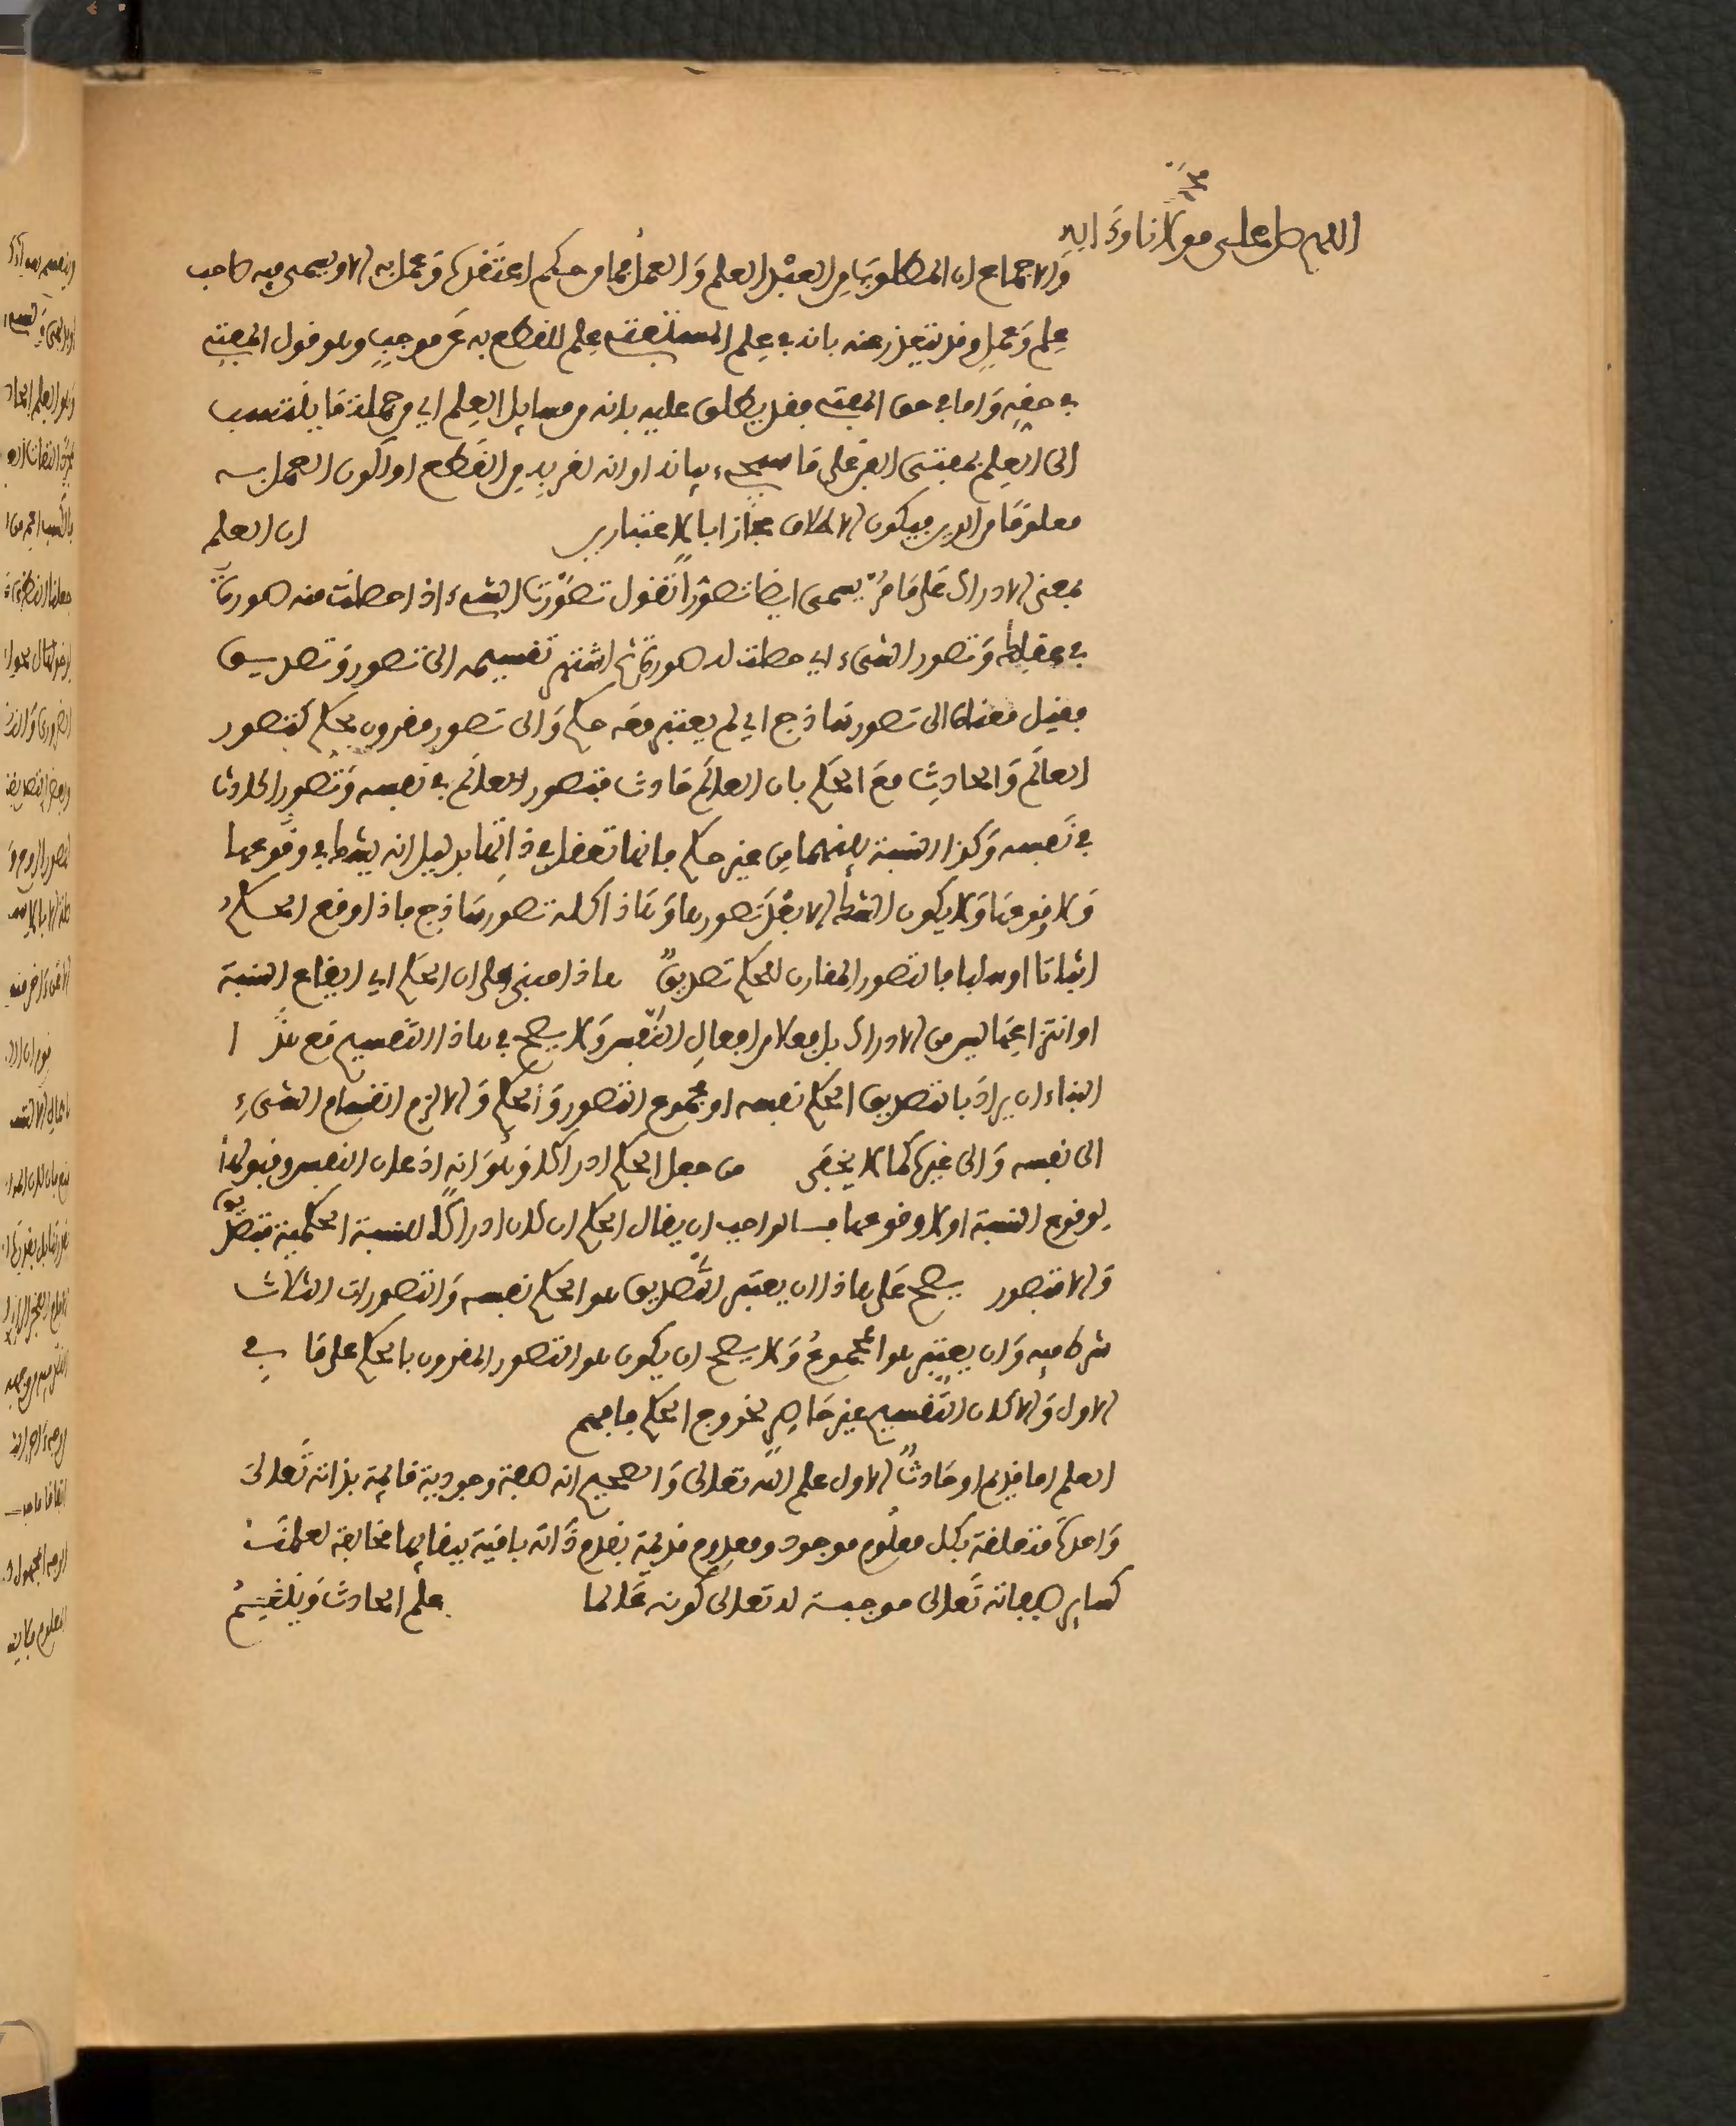 اللهم صل على مولانا محمد وءاله
والاجماع ان المطلوب من العبد العلم والعمل فما من حكم اعتقده وعمل به الا ويسمى فيه صاحب
علم وعمل وقد يعتذر عنه بانه في علم المستفتي علم للقطع به عن موجب وهو قول المفتي
في حقه واما في حق المفتي فقد يطلق عليه بانه من مسايل العلم اي من جملة ما ينتسب
الى العلم بمعنى الفن على ما سيجيء بيانه او انه لقربه من القطع او لكون العمل به
معلوما من الدين فيكون الاطلاق مجازا بالاعتبارين ان العلم
بمعنى الادراك على ما مر يسمى ايضا تصورا تقول تصورت الشيء اذا حصلت منه صورة
في عقلك وتصور الشيء اي حصلت له صورة ثم اشتهر تقسيمه الى تصور وتصديق
فقيل معناه الى تصور ساذج اي لم يعتبر معه حكم والى تصور مقرون بحكم كتصور
العالم والحادث مع الحكم بان العالم حادث فتصور العالم في نفسه وتصور الحادث
في نفسه وكذا النسبة بينهما من غير حكم فانها تعقل في ذاتها بدليل انه يشك في وقوعها
ولا وقوعها ولا يكون الشك الا بعد تصورها وهذا كله تصور ساذج فاذا وقع الحكم
اثباتا او سلبا فالتصور المقارن للحكم تصديق هاذا مبني على ان الحكم اي ايقاع النسبة
او انتزاعها ليس من الادراك بل فعلا من افعال النفس ولا يصح في هاذا التقسيم مع هذا
البناء ان يراد بالتصديق الحكم نفسه او مجموع التصور والحكم والا لزم انقسام الشيء
الى نفسه والى غيره كما لا يخفى من جعل الحكم ادراكا وهو انه اذعان النفس وقبولها
لوقوع النسبة او لا وقوعها فالواجب ان يقال الحكم ان كان ادراكا للنسبة الحكمية فتصديق
والا فتصور يصح على هاذا ان يعتبر التصديق هو الحكم نفسه والتصورات الثلاث
شرطا فيه وان يعتبر هو المجموع ولا يصح ان يكون هو التصور المقرون بالحكم على ما في
الاول والا كان التقسيم غير حاصر لخروج الحكم فافهم
العلم اما قديم او حادث الاول علم الله تعالى والصحيح انه صفة وجودية قايمة بذاته تعالى
واحدة متعلقة بكل معلوم موجود ومعدوم قديمة بقدم ذاته باقية ببقايها مخالفة لعلمنا
كساير صفاته تعالى موجبة له تعالى كونه عالما علم الحادث وينقسم